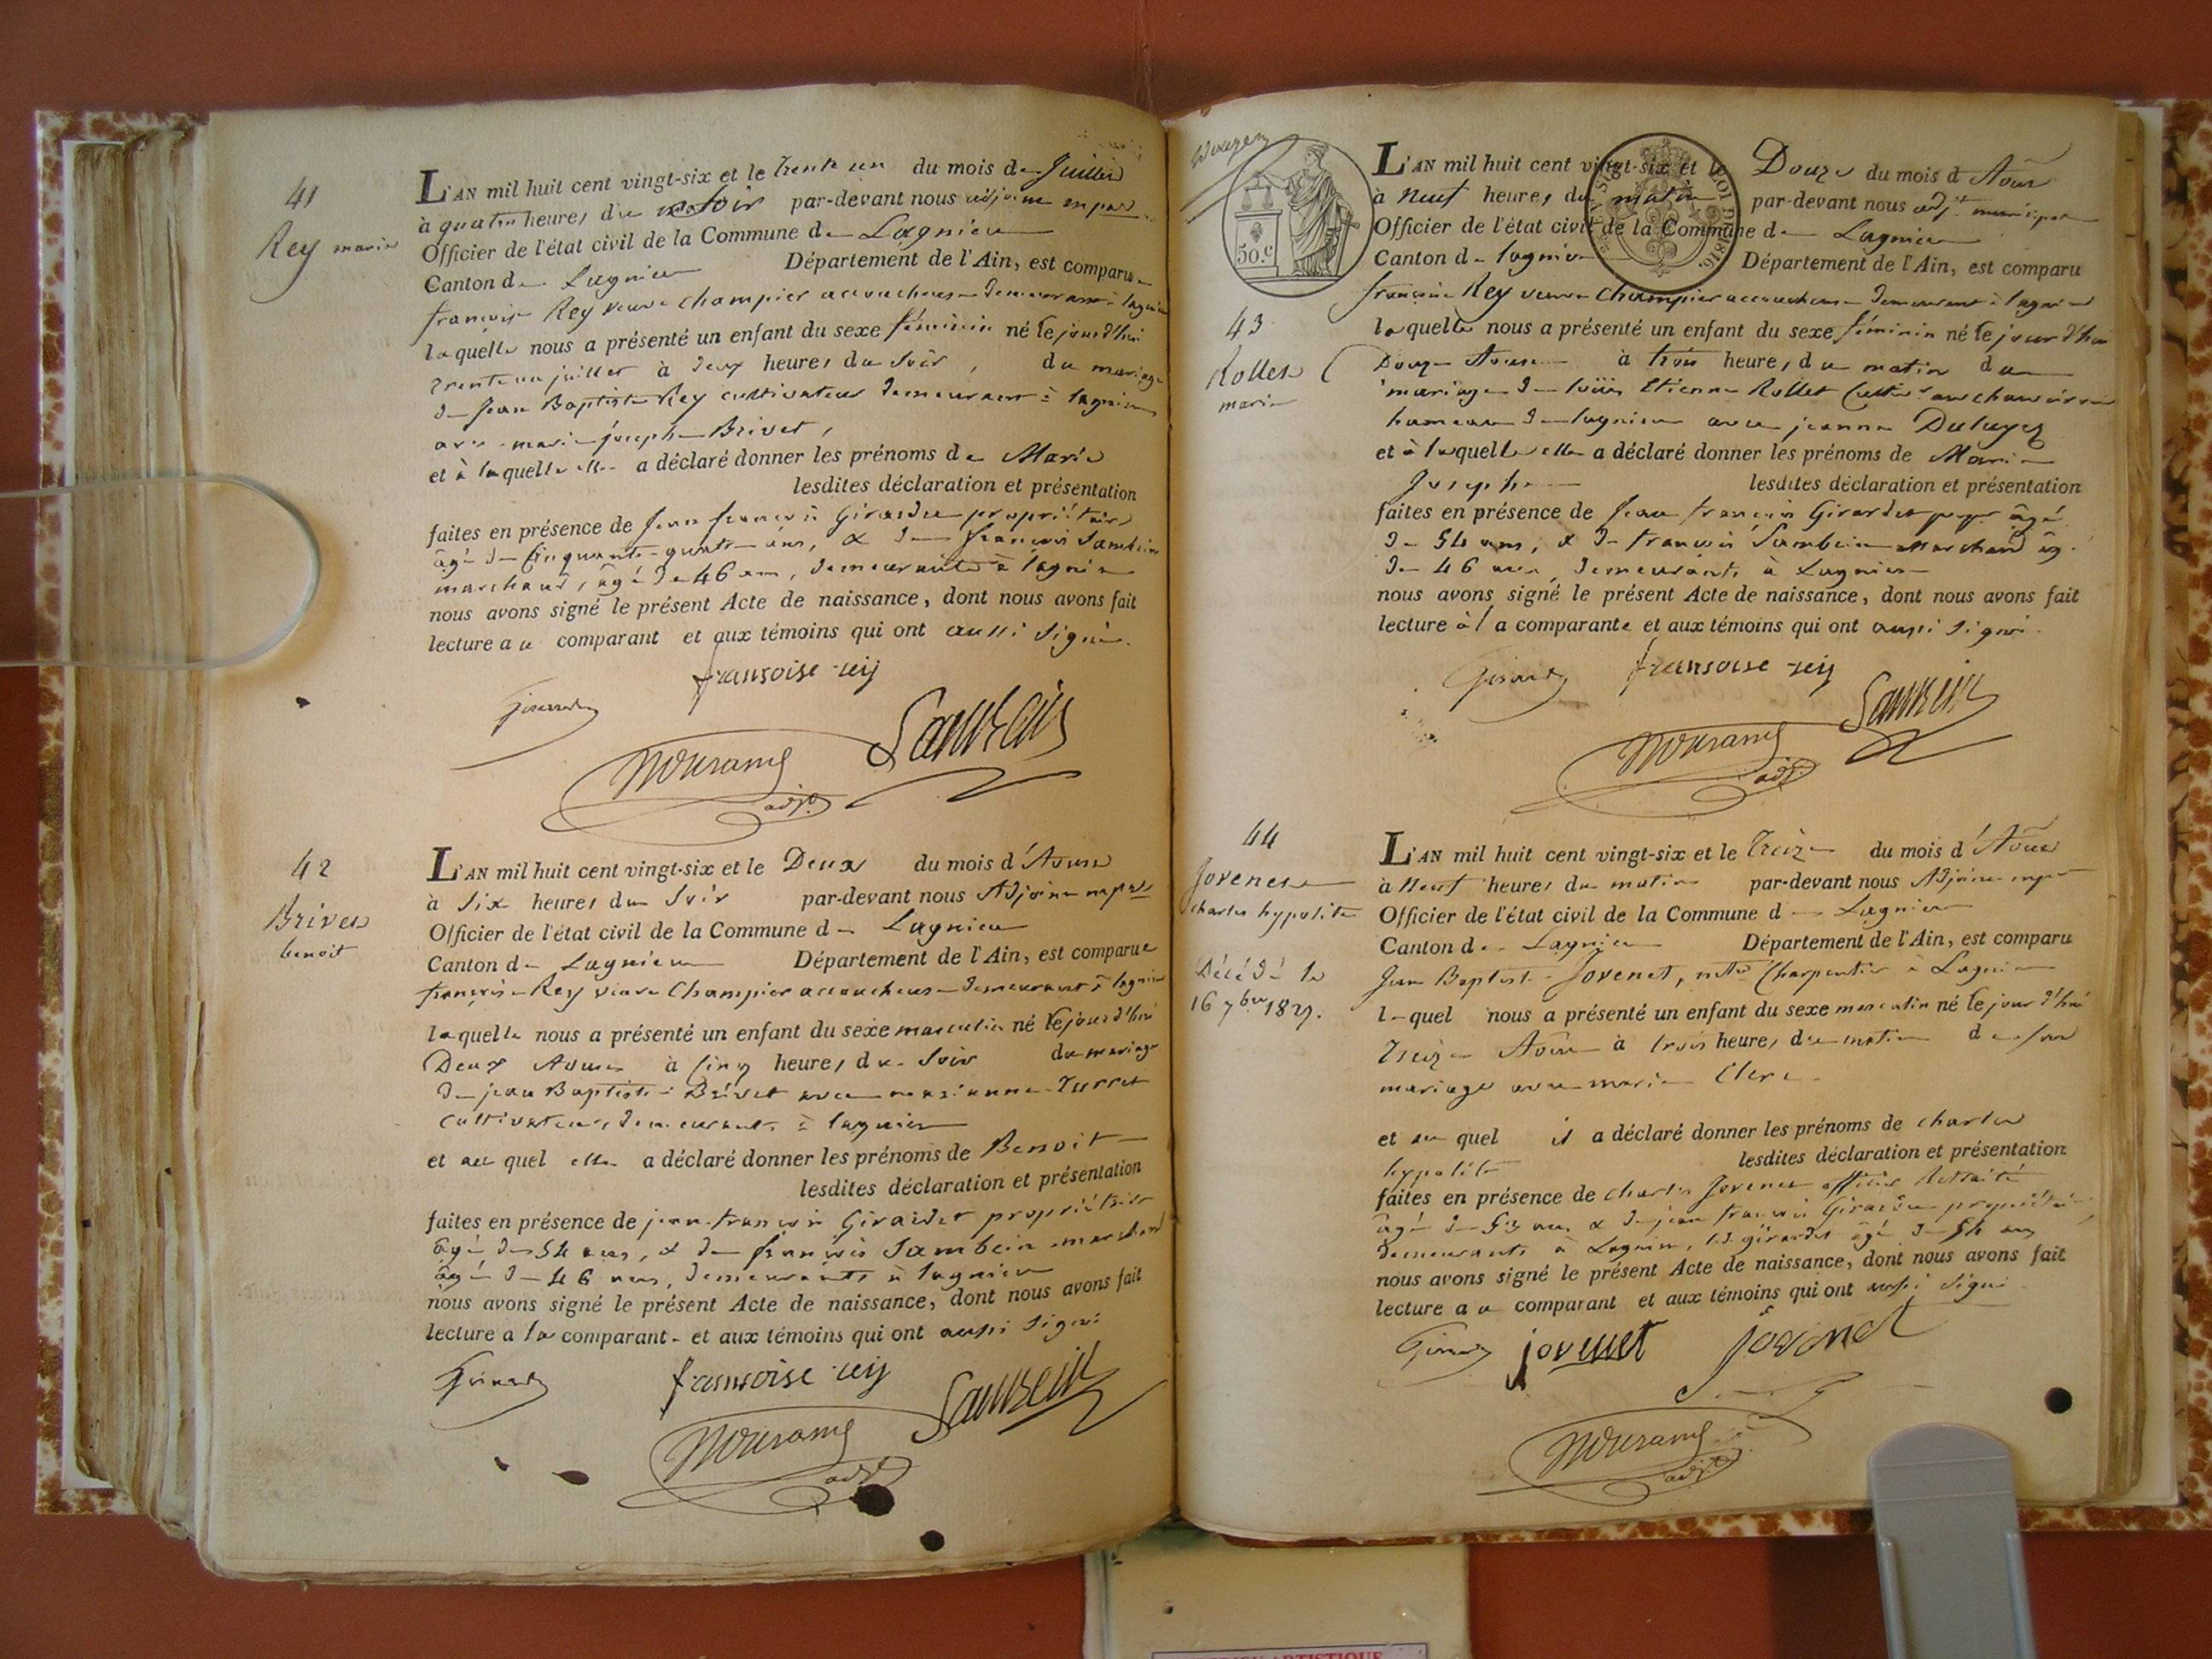 41
Rey marie
L'AN mil huit cent vingt-six et le trente un du mois de Juillet
à quatre heures du soir par-devant nous adjoint
Officier de l'état civil de la Commune de Lagnieu
Canton de Lagnieu Département de l'Ain, est comparue
françoise Rey veuve Champier accoucheuse demeurant à lagnieu
laquelle nous a présenté un enfant du sexe féminin né le jourd'hui
trente un juillet à deux heures du soir, du mariage
de Jean Baptiste Rey cultivateur demeurant à lagnieu
avec marie josephe Brivet,
et à laquelle elle a déclaré donner les prénoms de Marie
lesdites déclaration et présentation
faites en présence de Jean françois Girardet propriétaire
âgé de Cinquante-quatre ans, & de françois Sambein
marchand, âgé de 46 ans, demeurants à lagnieu
nous avons signé le présent Acte de naissance, dont nous avons fait
lecture au comparant et aux témoins qui ont aussi signé.
fransoise reij
Girardet
Sambein
adjt
42
Brivet
benoit
L'AN mil huit cent vingt-six et le Deux du mois d'Aoust
à Six heures du Soir par-devant nous Adjoint
Officier de l'état civil de la Commune de Lagnieu
Canton de Lagnieu Département de l'Ain, est comparue
françoise Rey veuve Champier accoucheuse demeurant à lagnieu
laquelle nous a présenté un enfant du sexe masculin né le jourd'hui
Deux Aoust à cinq heures du Soir du mariage
de jean Baptiste Brivet avec marianne
cultivateurs demeurants à lagnieu
et au quel elle a déclaré donner les prénoms de Benoit
lesdites déclaration et présentation
faites en présence de jean-françois Girardet propriétaire
âgé de 54 ans, & de françois Sambein marchand
âgé de 46 ans, demeurants à lagnieu
nous avons signé le présent Acte de naissance, dont nous avons fait
lecture a la comparante et aux témoins qui ont aussi signé
Girardet
fransoise reij
Sambein
adjt
50.c
LOI DE 1816.
43
Rollet
marie
L'AN mil huit cent vingt-six et le Douze du mois d'Aoust
à Neuf heures du matin par-devant nous adjt municipal
Officier de l'état civil de la Commune de Lagnieu
Canton de lagnieu Département de l'Ain, est comparu
françoise Rey veuve Champier accoucheuse demeurant à lagnieu
laquelle nous a présenté un enfant du sexe féminin né le jourd'hui
Douze Aoust à trois heures du matin du
mariage de louis Etienne Rollet
hameau de lagnieu avec jeanne
et à laquelle elle a déclaré donner les prénoms de Marie
Josephe lesdites déclaration et présentation
faites en présence de Jean françois Girardet propre âgé
de 54 ans, & de françois Sambein Marchand âgé
de 46 ans, demeurants à Lagnieu
nous avons signé le présent Acte de naissance, dont nous avons fait
lecture à la comparante et aux témoins qui ont aussi signé.
Girardet
fransoise reij
Sambein
adjt
44
Jovenet
charles hypolite
Décédé le
16 7bre 1827.
L'AN mil huit cent vingt-six et le Treize du mois d'Aoust
à Neuf heures du matin par-devant nous Adjoint
Officier de l'état civil de la Commune de Lagnieu
Canton de Lagnieu Département de l'Ain, est comparu
Jean Baptiste Jovenet, Charpentier à Lagnieu
lequel nous a présenté un enfant du sexe masculin né le jourd'hui
Treize Aoust à trois heures du matin de son
mariage avec marie Clerc
et au quel il a déclaré donner les prénoms de charles
hypolite lesdites déclaration et présentation
faites en présence de charles Jovenet officier Retraité
âgé de ans & de jean françois Girardet propriétaire,
demeurants à Lagnieu, led. girardet âgé de 54 ans
nous avons signé le présent Acte de naissance, dont nous avons fait
lecture au comparant et aux témoins qui ont aussi signé
Girardet
jovenet
Jovenet
adjt
ARTISTIQUE